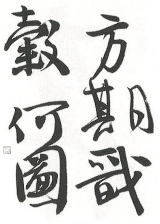 方期戩
穀何圖